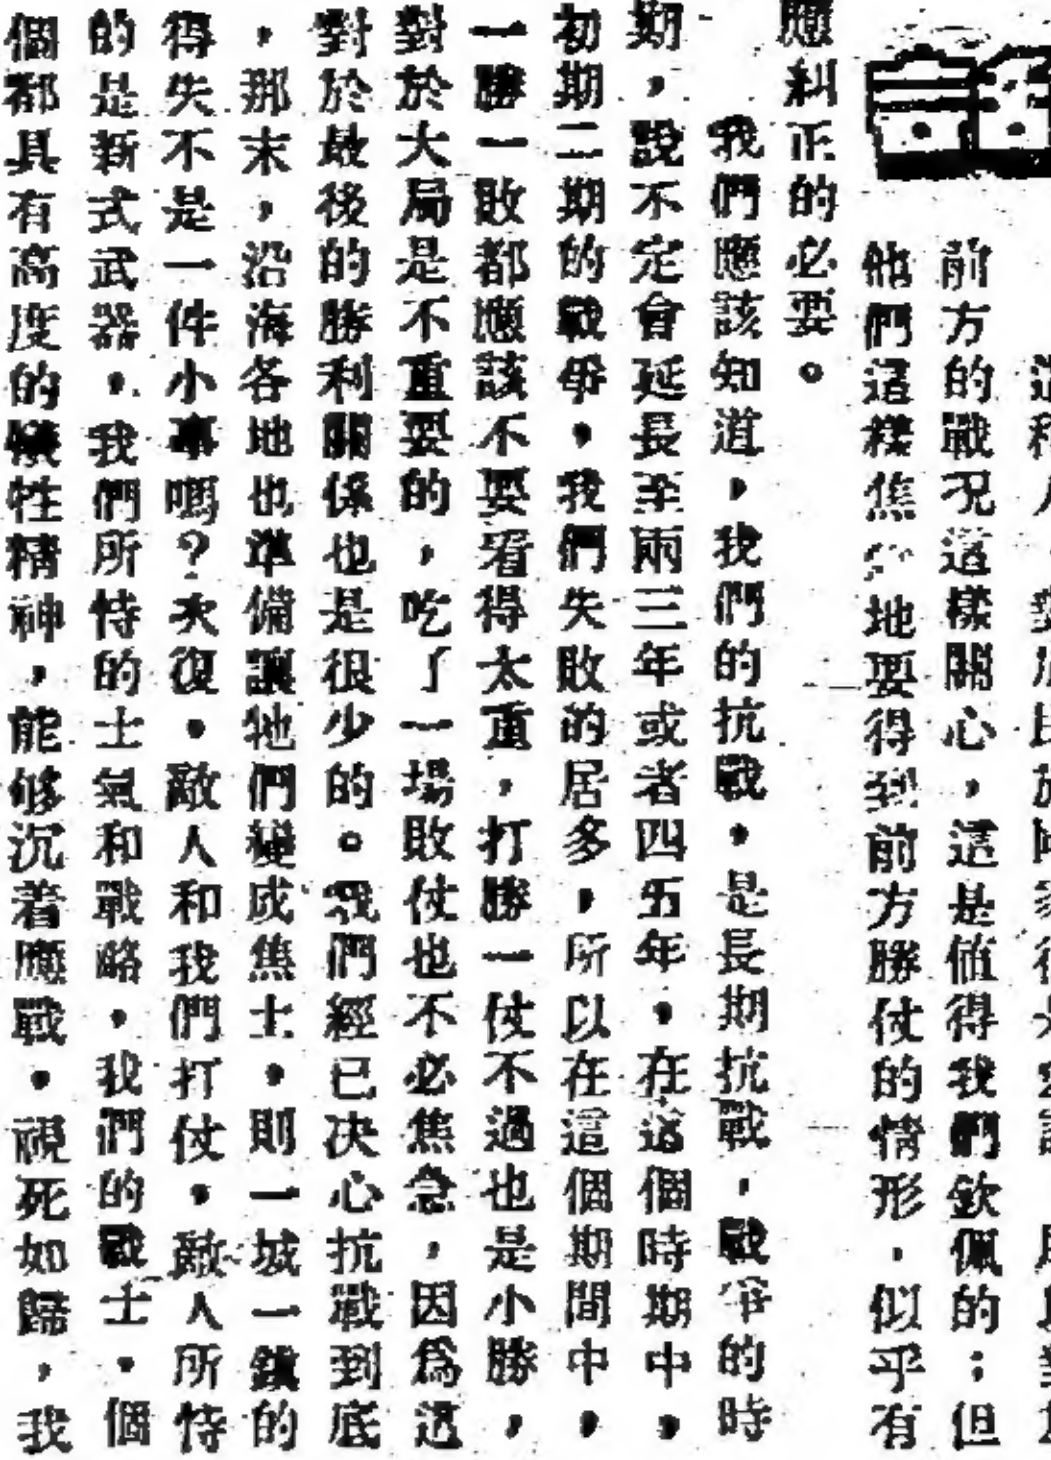 前方的戰况這樣關心,這是値得我們欽佩的;但
他們這樣焦 地要得到前方勝仗的情形,似乎有
應糾正的必要。
我們應該知道,我們的抗戰,是長期抗戰,戰爭的時
期,說不定會延長至兩三年或者四五年,在這個時期中,
初期二期的戰爭,我們失敗的居多,所以在這個期間中,
一勝一敗都應該不要看得太重,打勝一仗不過也是小勝,
對於大局是不重要的,吃了一場敗仗也不必焦急,因爲這
對於最後的勝利關係也是很少的。我們經已决心抗戰到底
,那末,沿海各地也準備讓牠們變成焦土,則一城一鎮的
得失不是一件小事嗎?次復,敵人和我們打仗,敵人所恃
的是新式武器,我們所恃的士氣和戰略,我們的戰士,個
個都具有高度的犧牲精神,能够沉着應戰,視死如歸,我